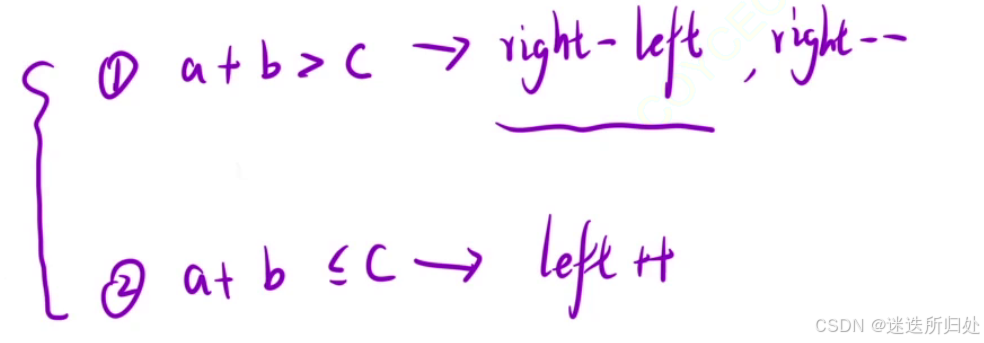 ① a + b > c → right - left , right --
② a + b ≤ c → left ++
CSDN @迷迭所归处